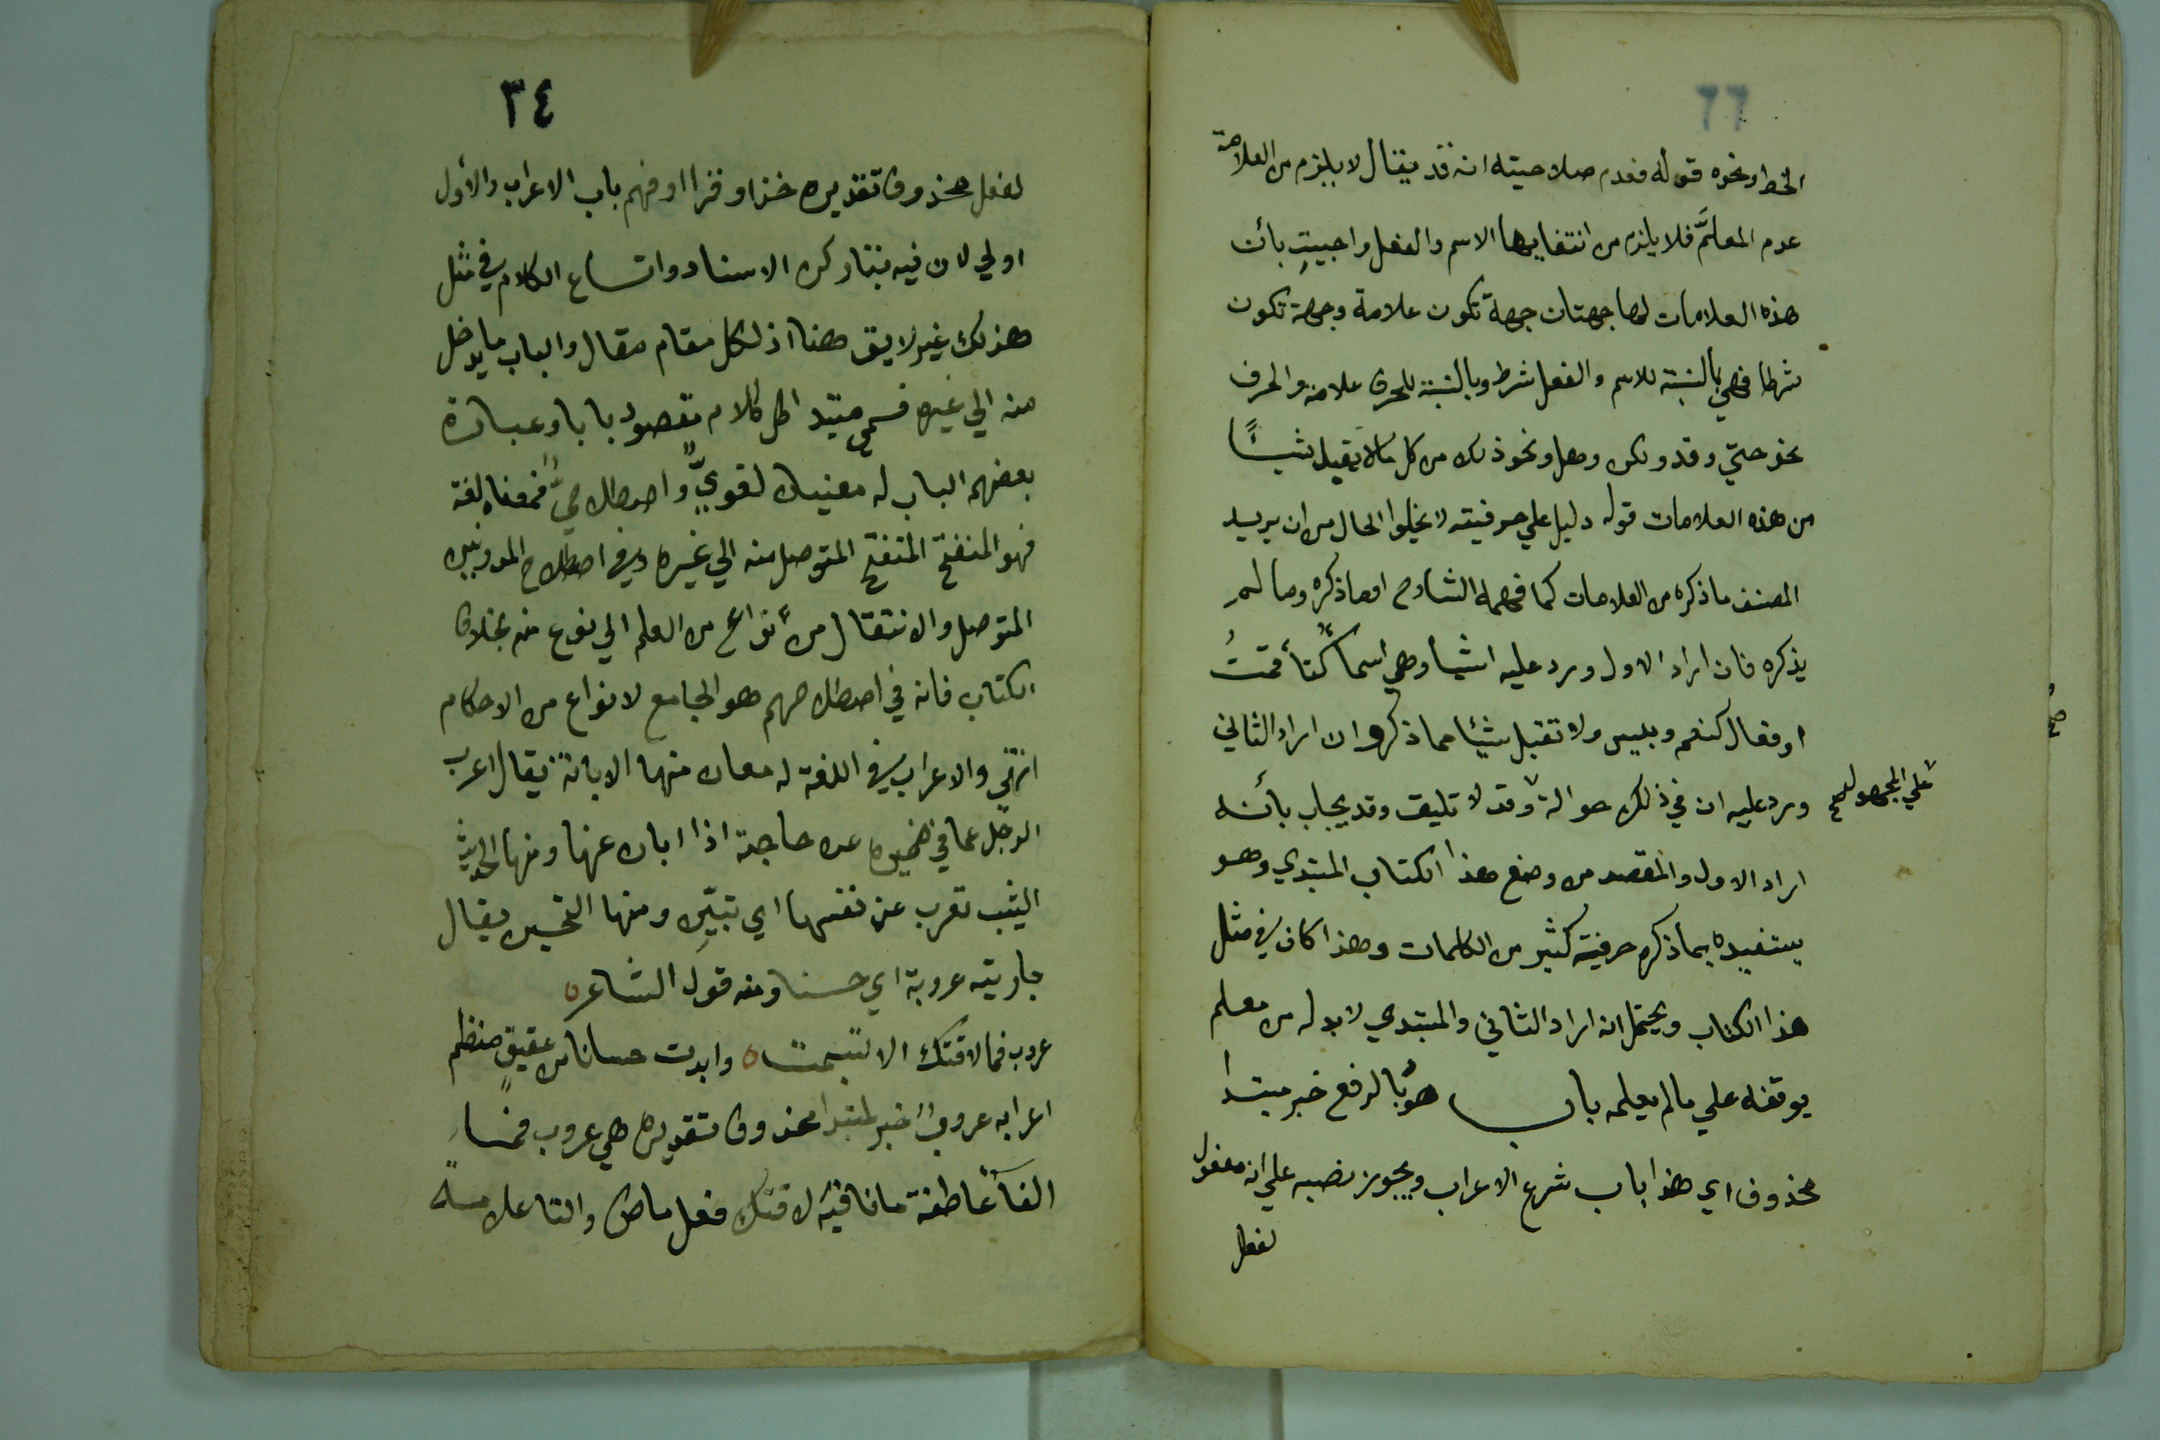 الخط ونحوه قوله فعدم صلاحيته انه قد يقال لا يلزم من العلامة
عدم المعلَّم فلا يلزم من انتفايها الاسم والفعل واجيبت بأن
هذه العلامات لها جهتان جهة تكون علامة وجهة تكون
شرطا فهي بالنسبة للاسم والفعل شرط وبالنسبة للحرف علامة والحرف
نحو حتي وقد ولكن وهل ونحو ذلك من كل ما لا يقبل شيئًا
من هذه العلامات قوله دليل علي حرفيته لا يخلوا الحال من ان يريد
المصنف ما ذكره من العلامات كما فهمه الشارح او ما ذكره وما لم
يذكره فان اراد الاول ورد عليه اشيا وهي اسما
او فعال كنعم وبليس ولا تقبل شيئا مما ذكر وان اراد الثاني
ورد عليه ان في ذلك حوالة وقد لا تليق وقد يجاب بأنه
علي المجهول صح
اراد الاول والمقصد من وضع هذا الكتاب المبتدي وهو
يستفيد بما ذكره حرفية كثير من الكلمات وهذا كان في مثل
هذا الكتاب ويحتمل انه اراد الثاني والمبتدي لا بد له من معلم
يوقفه علي ما لم يعلمه باب هو بالرفع خبر مبتدا
محذوف اي هذا باب شرع الاعراب ويجوز نصبه علي انه مفعول
لفعل
٣٤
لفعل محذوف تقديره خذ او اقرا او افهم باب الاعراب والأول
اولي لان فيه بتذكره الاسناد واتساع الكلام في مثل
هذلك غير لايق هنا اذ لكل مقام مقال والباب ما يدخل
منه الي غيره فسمي مبتدا كل كلام مقصود بابا وعبارة
بعضهم الباب له معنيان لغويٌّ واصطلاحيٌّ فمعناه لغة
فهو المنفتح المتوصل منه الي غيره وفي اصطلاح المدونين
المتوصل والانتقال من أنواع من العلم الي نوع منه بخلاف
الكتاب فانه في اصطلاحهم هو الجامع لانواع من الاحكام
انتهي والاعراب في اللغة له معان منها الابانة يقال اعرب
الرجل عما في ضميره عن حاجة اذا ابان عنها ومنها الحديث
الثيب تعرب عن نفسها اي تبيّن ومنها التحسين يقال
جارية عروبة اي حسنا ومنه قول الشاعر
عروب فما لاقتك الا تبسمت وابدت حسانا من عقيق منظم
اعرابه عروب خبر لمبتدا محذوف تقديره هي عروب فما
الفأ عاطفة ما نافية لاقتك فعل ماض والتا علامة